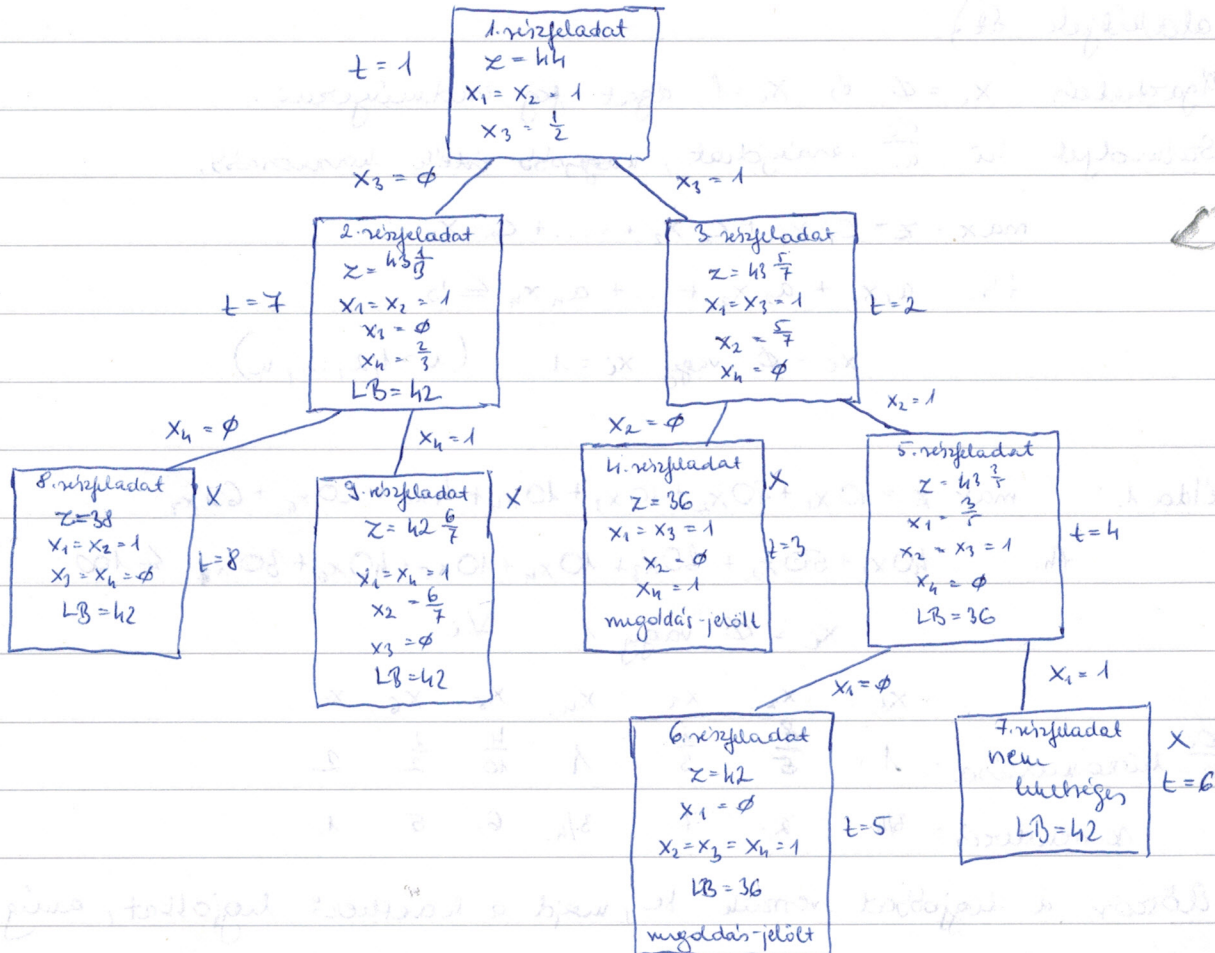 1. részfeladat
t = 1
z = 44
x₁ = x₂ = 1
x₃ = 1/2
x₃ = ∅
x₃ = 1
2. részfeladat
z = 43 1/3
x₁ = x₂ = 1
x₃ = ∅
x₄ = 2/3
LB = 42
t = 7
3. részfeladat
z = 43 5/7
x₁ = x₃ = 1
x₂ = 5/7
x₄ = ∅
t = 2
x₄ = ∅
x₄ = 1
x₂ = ∅
x₂ = 1
8. részfeladat
z = 38
x₁ = x₂ = 1
x₃ = x₄ = ∅
LB = 42
X
t = 8
9. részfeladat
z = 42 6/7
x₁ = x₄ = 1
x₂ = 6/7
x₃ = ∅
LB = 42
X
4. részfeladat
z = 36
x₁ = x₃ = 1
x₂ = ∅
x₄ = 1
megoldás-jelölt
X
t = 3
5. részfeladat
z = 43 3/5
x₁ = 3/5
x₂ = x₃ = 1
x₄ = ∅
LB = 36
t = 4
x₁ = ∅
x₁ = 1
6. részfeladat
z = 42
x₁ = ∅
x₂ = x₃ = x₄ = 1
LB = 36
megoldás-jelölt
t = 5
7. részfeladat
nem
lehetséges
LB = 42
X
t = 6